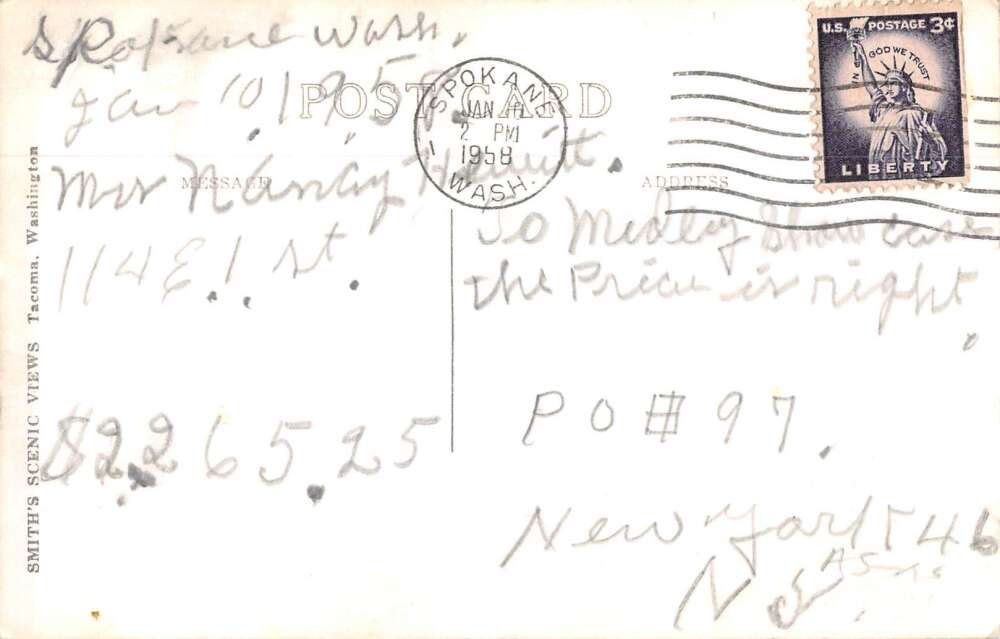 Spokane Wash.
Jan 10, 1958
POST CARD
SPOKANE
JAN
2 PM
1958
WASH.
1
U.S. POSTAGE 3¢
IN GOD WE TRUST
LIBERTY
MESSAGE
ADDRESS
Mrs Nancy Hewitt.
114 E. 1 st.
$2.265.25
To Medley Show case
the Price is right
PO # 97.
New York 46
N
SMITH'S SCENIC VIEWS Tacoma, Washington